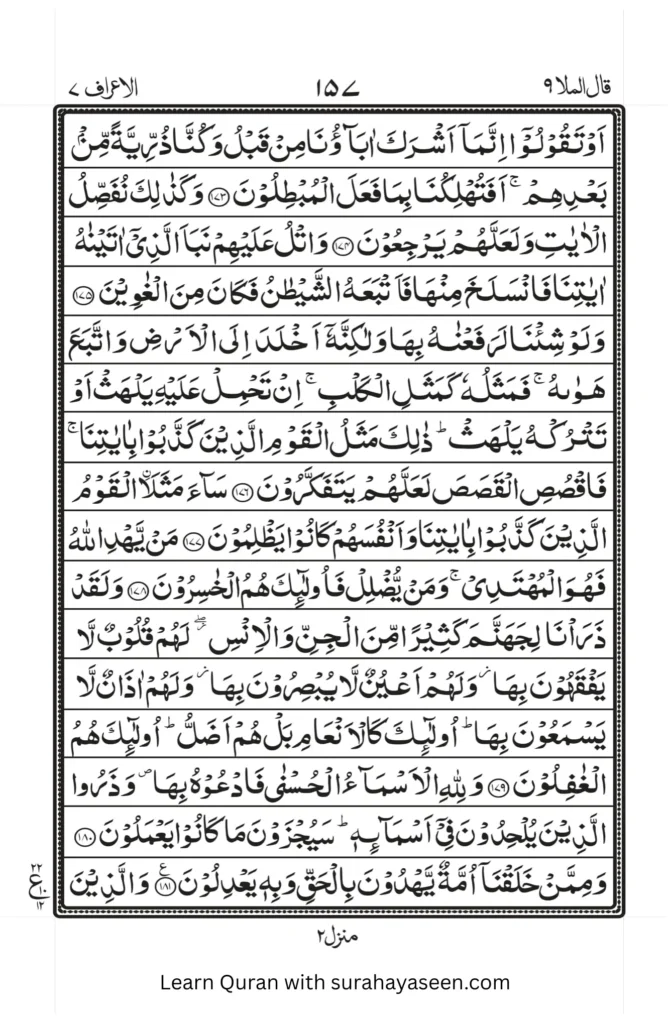 قال الملا ٩ ١٥٧ الاعراف ٧
اَوۡ تَقُوۡلُوۡۤا اِنَّمَاۤ اَشۡرَكَ اٰبَآؤُنَا مِنۡ قَبۡلُ وَكُنَّا ذُرِّيَّةً مِّنۡۢ
بَعۡدِهِمۡ‌ۚ اَفَتُهۡلِكُنَا بِمَا فَعَلَ الۡمُبۡطِلُوۡنَ ﴿۱۷۳﴾ وَكَذٰلِكَ نُفَصِّلُ
الۡاٰيٰتِ وَلَعَلَّهُمۡ يَرۡجِعُوۡنَ ﴿۱۷۴﴾ وَاتۡلُ عَلَيۡهِمۡ نَبَاَ الَّذِىۡۤ اٰتَيۡنٰهُ
اٰيٰتِنَا فَانْسَلَخَ مِنۡهَا فَاَتۡبَعَهُ الشَّيۡطٰنُ فَكَانَ مِنَ الۡغٰوِيۡنَ ﴿۱۷۵﴾
وَلَوۡ شِئۡنَا لَرَفَعۡنٰهُ بِهَا وَلٰكِنَّهٗۤ اَخۡلَدَ اِلَى الۡاَرۡضِ وَاتَّبَعَ
هَوٰٮهُ‌ۚ فَمَثَلُهٗ كَمَثَلِ الۡكَلۡبِ‌ۚ اِنۡ تَحۡمِلۡ عَلَيۡهِ يَلۡهَثۡ اَوۡ
تَتۡرُكۡهُ يَلۡهَثۡ‌ؕ ذٰلِكَ مَثَلُ الۡقَوۡمِ الَّذِيۡنَ كَذَّبُوۡا بِاٰيٰتِنَا‌ۚ
فَاقۡصُصِ الۡقَصَصَ لَعَلَّهُمۡ يَتَفَكَّرُوۡنَ ﴿۱۷۶﴾ سَآءَ مَثَلَاْ اۨلۡقَوۡمُ
الَّذِيۡنَ كَذَّبُوۡا بِاٰيٰتِنَا وَاَنۡفُسَهُمۡ كَانُوۡا يَظۡلِمُوۡنَ ﴿۱۷۷﴾ مَنۡ يَّهۡدِ اللّٰهُ
فَهُوَ الۡمُهۡتَدِىۡ‌ۚ وَمَنۡ يُّضۡلِلۡ فَاُولٰۤٮِٕكَ هُمُ الۡخٰسِرُوۡنَ ﴿۱۷۸﴾ وَلَقَدۡ
ذَرَاۡنَا لِجَهَنَّمَ كَثِيۡرًا مِّنَ الۡجِنِّ وَالۡاِنۡسِ‌ۖ لَهُمۡ قُلُوۡبٌ لَّا
يَفۡقَهُوۡنَ بِهَا وَلَهُمۡ اَعۡيُنٌ لَّا يُبۡصِرُوۡنَ بِهَا وَلَهُمۡ اٰذَانٌ لَّا
يَسۡمَعُوۡنَ بِهَا‌ؕ اُولٰۤٮِٕكَ كَالۡاَنۡعَامِ بَلۡ هُمۡ اَضَلُّ‌ؕ اُولٰۤٮِٕكَ هُمُ
الۡغٰفِلُوۡنَ ﴿۱۷۹﴾ وَلِلّٰهِ الۡاَسۡمَآءُ الۡحُسۡنٰى فَادۡعُوۡهُ بِهَا وَذَرُوا
الَّذِيۡنَ يُلۡحِدُوۡنَ فِىۡۤ اَسۡمَآٮِٕهٖ‌ؕ سَيُجۡزَوۡنَ مَا كَانُوۡا يَعۡمَلُوۡنَ ﴿۱۸۰﴾
وَمِمَّنۡ خَلَقۡنَاۤ اُمَّةٌ يَّهۡدُوۡنَ بِالۡحَـقِّ وَبِهٖ يَعۡدِلُوۡنَ ﴿۱۸۱﴾ وَالَّذِيۡنَ
٢٢ ع ١٠ ١٢
منزل ٢
Learn Quran with surahayaseen.com